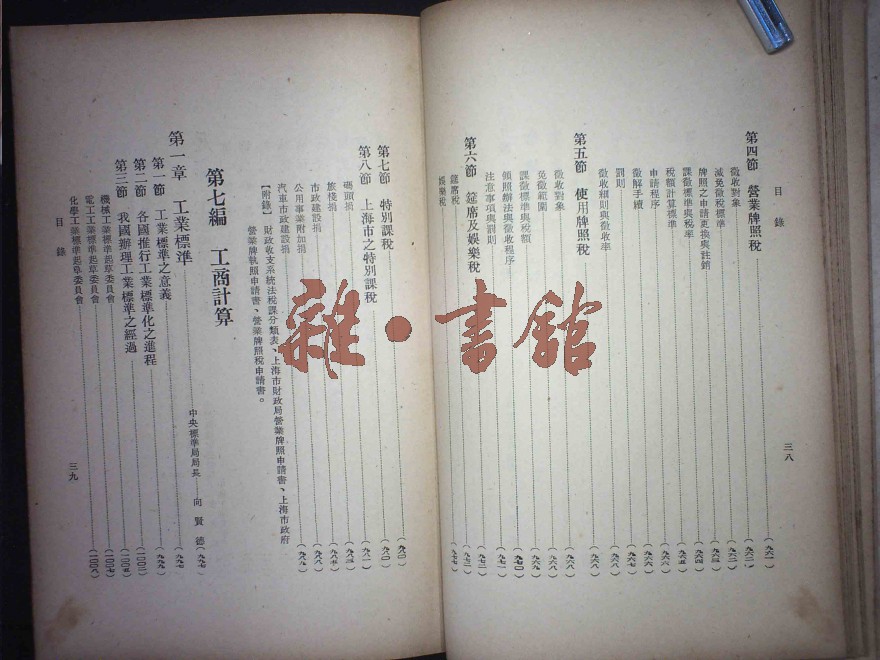 目錄
三八
第四節 營業牌照稅 (九六一)
徵收對象 (九六二)
減免徵稅標準 (九六二)
牌照之申請更換與註銷 (九六三)
課徵標準與稅率 (九六四)
稅額計算標準 (九六五)
申請程序 (九六六)
徵解手續 (九六六)
罰則 (九六七)
徵收細則與徵收率 (九六八)
第五節 使用牌照稅 (九六八)
徵收對象 (九六八)
免徵範圍 (九六九)
課徵標準與稅額 (九七〇)
領照辦法與徵收程序 (九七一)
注意事項與罰則 (九七二)
第六節 筵席及娛樂稅
筵席稅
娛樂稅 (九七七)
第七節 特別課稅
第八節 上海市之特別課稅
碼頭捐
旅棧捐
市政建設捐
公用事業附加捐
汽車市政建設捐
【附錄】財政收支系統法稅課分類表、上海市財政局營業牌照申請書、上海市政府
營業牌執照申請書、營業牌照稅申請書。
第七編 工商計算
第一章 工業標準 中央標準局局長 向賢德 (九九七)
第一節 工業標準之意義 (九九七)
第二節 各國推行工業標準化之進程 (九九九)
第三節 我國辦理工業標準之經過
機械工業標準起草委員會
電工工業標準起草委員會
化學工業標準起草委員會
目錄
三九
雜·書館